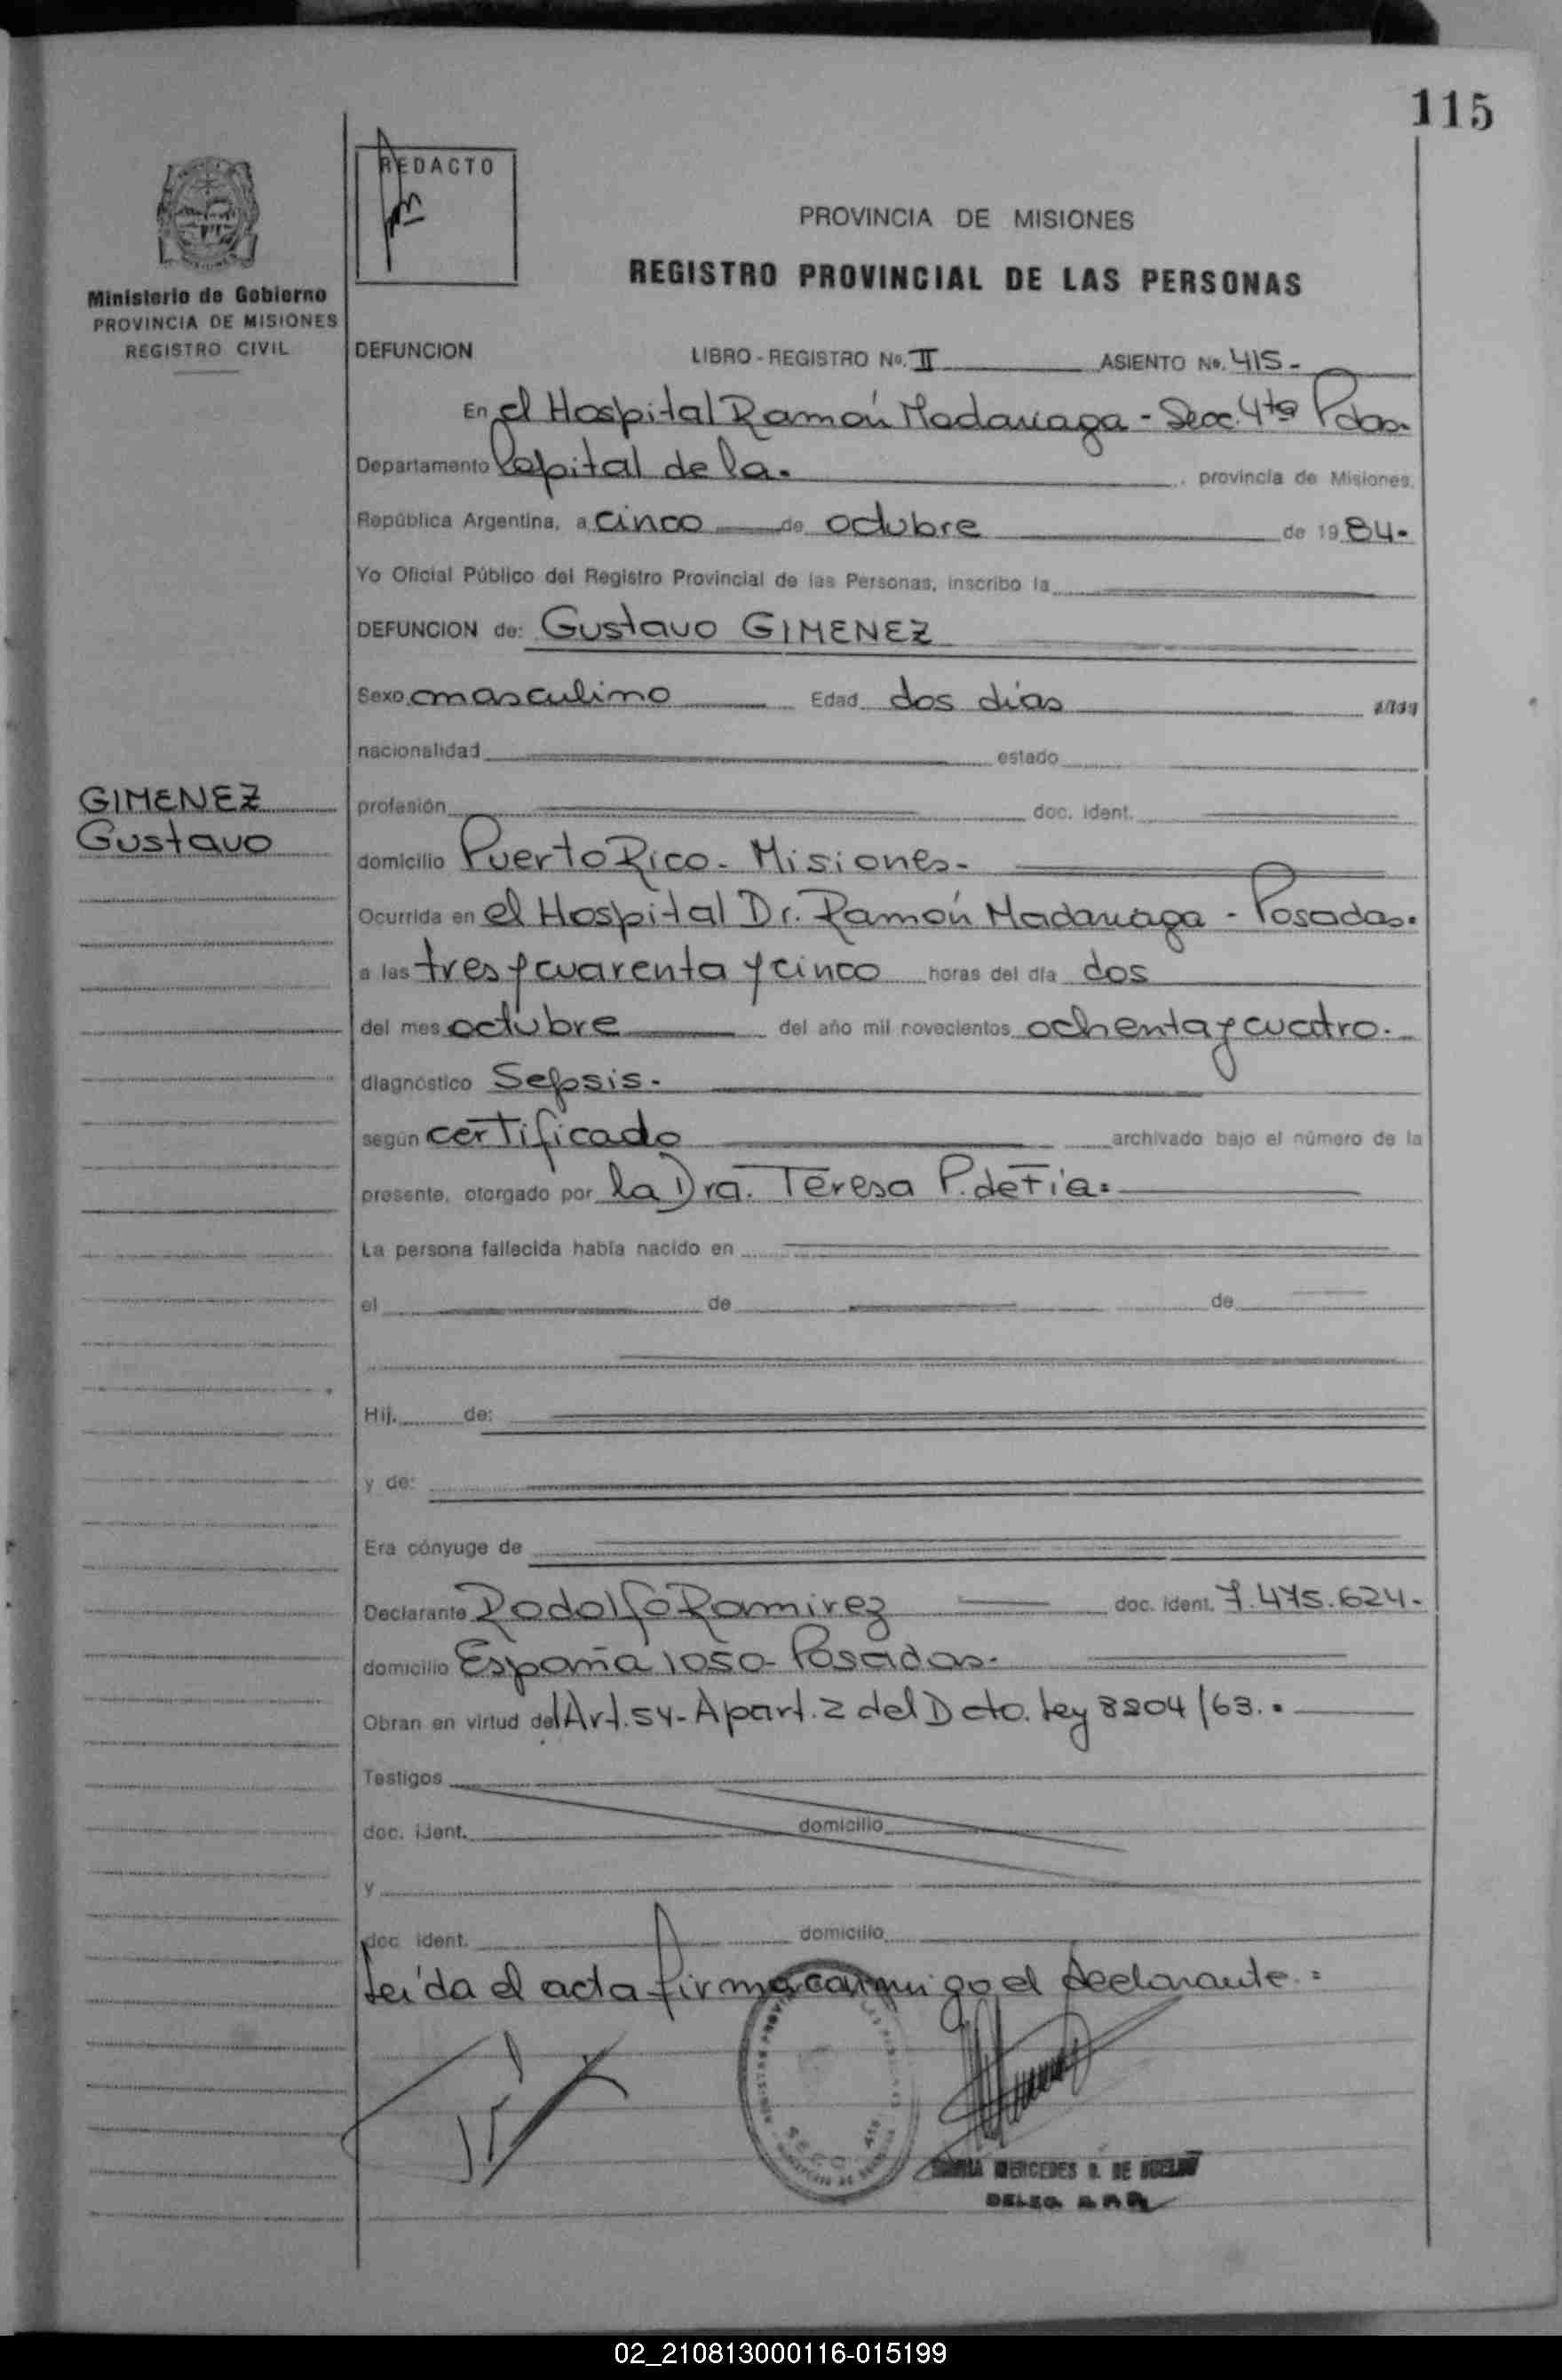 115
REDACTO
PROVINCIA DE MISIONES
REGISTRO PROVINCIAL DE LAS PERSONAS
Ministerio de Gobierno
PROVINCIA DE MISIONES
REGISTRO CIVIL
DEFUNCION LIBRO - REGISTRO No. II ASIENTO No. 415-
En el Hospital Ramón Madariaga - Secc. 4ta Pdas.
Departamento Capital de la. provincia de Misiones.
República Argentina, a cinco de octubre de 1984.
Yo Oficial Público del Registro Provincial de las Personas, inscribo la
DEFUNCION de: Gustavo GIMENEZ
Sexo masculino Edad dos días
nacionalidad estado
GIMENEZ
Gustavo
profesión doc. ident.
domicilio Puerto Rico - Misiones-
Ocurrida en el Hospital Dr. Ramón Madariaga - Posadas.
a las tres y cuarenta y cinco horas del día dos
del mes octubre del año mil novecientos ochenta y cuatro.
diagnóstico Sepsis.
según certificado archivado bajo el número de la
presente, otorgado por la Dra. Teresa P. de
La persona fallecida había nacido en
el de de
Hij. de:
y de:
Era cónyuge de
Declarante Rodolfo Ramirez doc. ident. 7.475.624.
domicilio España 1050- Posadas.
Obran en virtud del Art. 54- Apart. 2 del Dcto. Ley 8204/63.
Testigos
doc. ident. domicilio
y
doc ident. domicilio
Leída el acta firma conmigo el declarante.=
MERCEDES DE
02_210813000116-015199